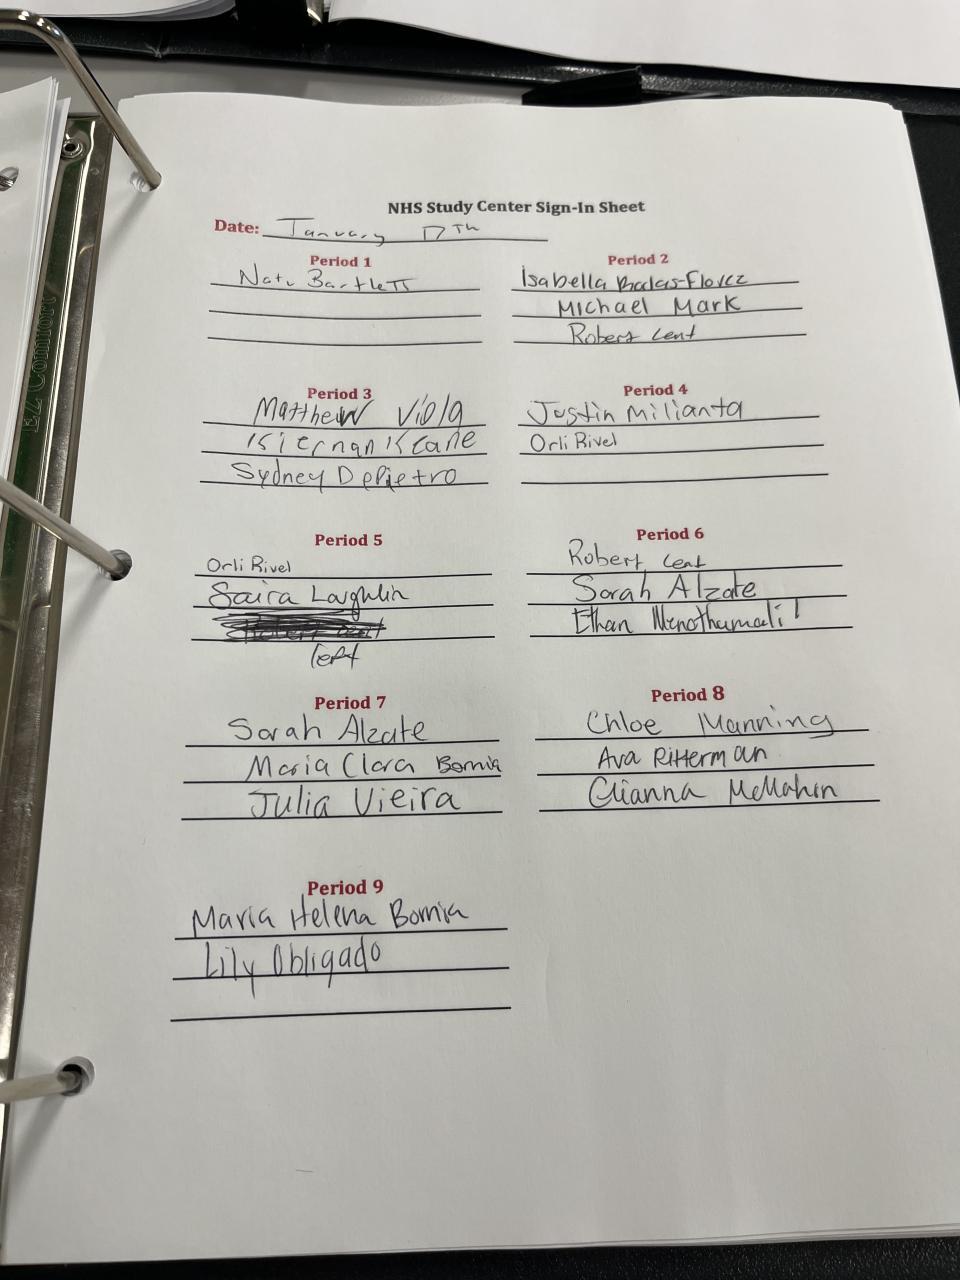 NHS Study Center Sign-In Sheet
Date: January 17Th
Period 1
Bartlett
Period 2
Isabella
Michael Mark
Robert Lent
Period 3
Matthew Viola
Kiernan Keane
Sydney DePietro
Period 4
Justin Milianta
Orli Rivel
Period 5
Orli Rivel
Saira Laughlin
Period 6
Robert Lent
Sarah Alzate
Ethan
Period 7
Sarah Alzate
Maria Clara Bornia
Julia Vieira
Period 8
Chloe Manning
Ava Ritterman
Gianna McMahon
Period 9
Maria Helena Bornia
Lily Obligado
EZ Comfort